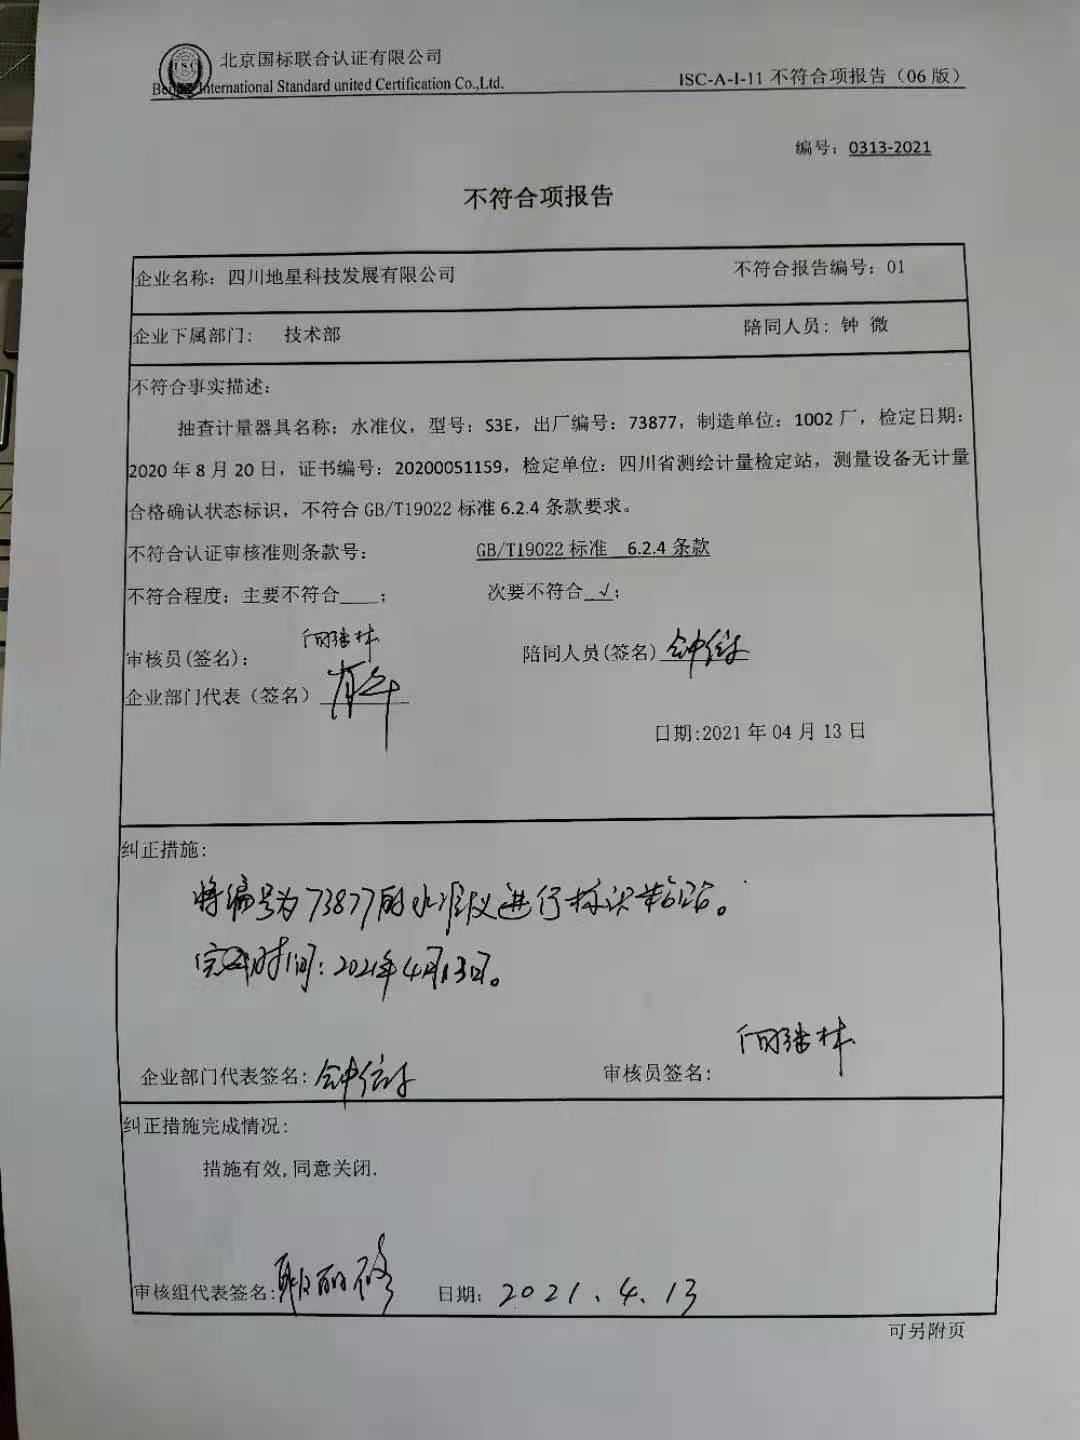 北京国标联合认证有限公司
International Standard united Certification Co.,Ltd.
ISC-A-I-11 不符合项报告（06 版）
编号：0313-2021
不符合项报告
企业名称：四川地星科技发展有限公司 不符合报告编号：01
企业下属部门： 技术部 陪同人员：钟 微
不符合事实描述：
抽查计量器具名称：水准仪，型号：S3E，出厂编号：73877，制造单位：1002 厂，检定日期：
2020 年 8 月 20 日，证书编号：20200051159，检定单位：四川省测绘计量检定站，测量设备无计量
合格确认状态标识，不符合 GB/T19022 标准 6.2.4 条款要求。
不符合认证审核准则条款号： GB/T19022 标准 6.2.4 条款
不符合程度：主要不符合____； 次要不符合_√_；
审核员(签名)： 陪同人员(签名)
企业部门代表（签名）
日期:2021 年 04 月 13 日
纠正措施：
将编号为73877的水准仪进行标识
完成时间：2021年4月13日。
企业部门代表签名： 审核员签名：
纠正措施完成情况：
措施有效,同意关闭.
审核组代表签名： 日期：2021.4.13
可另附页